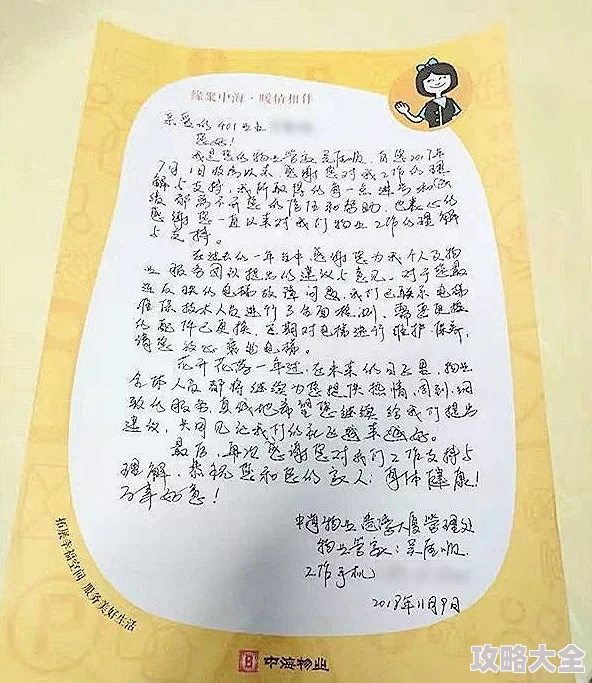 缘聚中海·暖情相伴
亲爱的401业主
您好!
我是您的物业管家吴 顺,自您2017年
7月1日收房以来,感谢您对我工作的理
解与支持,我所取得的每一点进步和成
绩都离不开您的信任和帮助,巴 心的
感谢您一直以来对我们物业工作的理解
与支持。
在过去的一年当中,感谢您为我个人及物
业服务团队提出的建议与意见。对于您最
近反映的电梯故障问题,我们已联系电梯
维保技术人员进行了全面检测,需要更换
的配件已更换,定期对电梯进行维护保养,
请您放心乘坐电梯。
花开花落一年过,在未来的日子里,物业
全体人员都将继续为您提供热情、周到、细
致的服务,真诚地希望您继续给我们提出
建议,共同见证我们的 越来越好。
最后,再次感谢您对我们工作支持与
理解,恭祝您和您的家人:身体健康!
万事如意!
中海物业 大厦管理处
物业管家:吴 顺
工作手机
2018年11月9日
拓展幸福空间 服务美好生活
中海物业
攻略大全